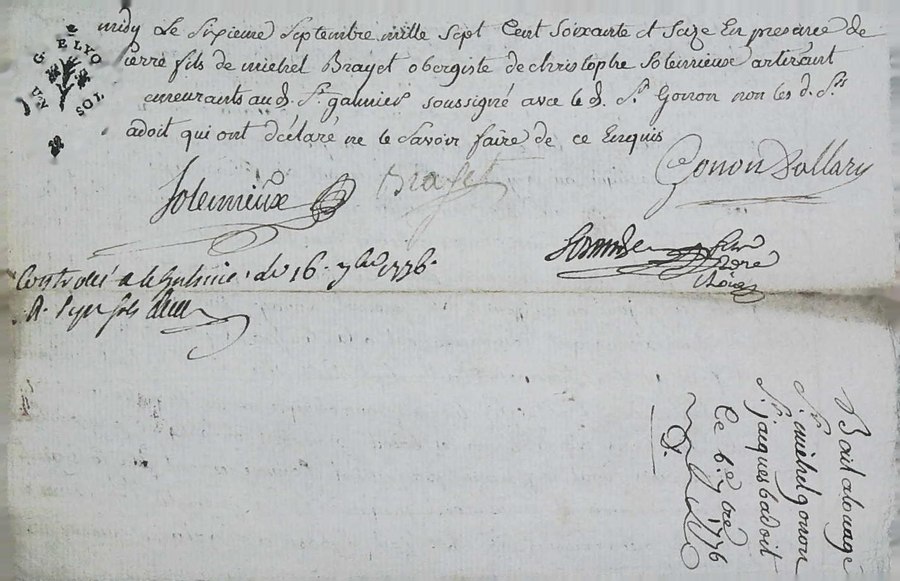 midy Le Sixieme Septembre mille Sept Cent Soixante et Seize En presence de
ierre fils de michel Brayet obergiste de christophe Soleimieux artirant
emeurants aud. St. galmier soussigné avec le d. Sr. Gonon non les d. Srs
adoit qui ont déclaré ne le Savoir faire de ce Enquis
G. ELYO
SOL
Soleimieux
Brayet
Gonon Dallary
Controllé a St Galmier le 16. 7bre 1776.
Bail a louage
Sr. michel gonon
Sr. jacques badoit
Ce 6e 7bre 1776
D.